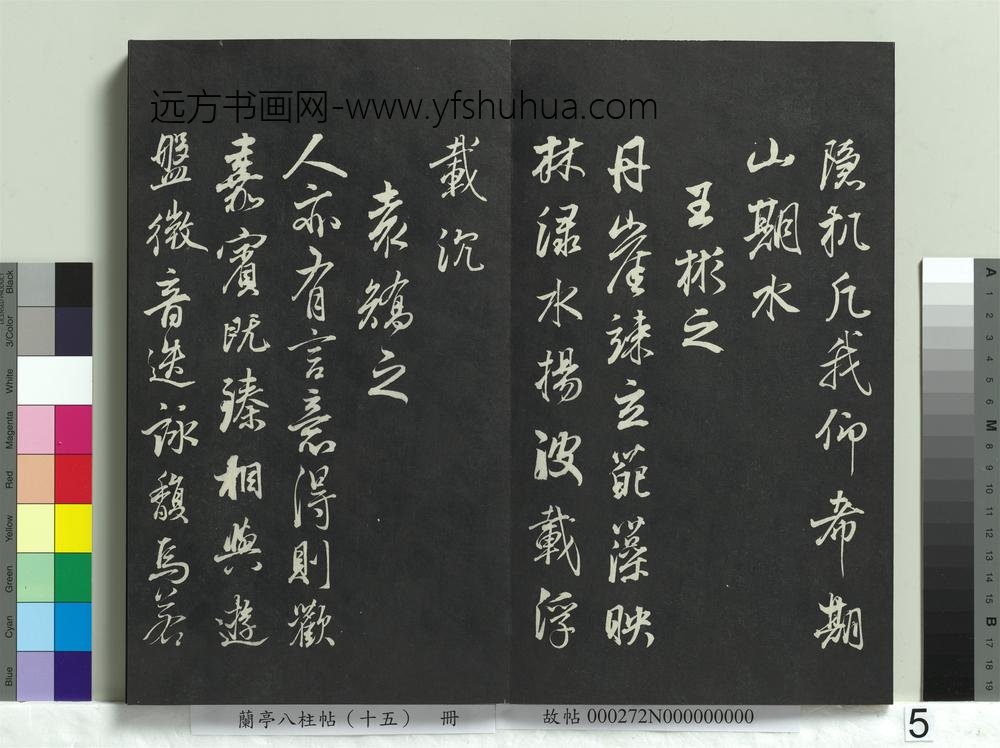 远方书画网-www.yfshuhua.com
隐机凡我仰希期
山期水
王彬之
丹崖竦立葩藻映
林淥水揚波載浮
載沉
袁矯之
人亦有言意得則歡
嘉賓既臻相與遊
盤微音迭詠馥焉若
蘭亭八柱帖（十五） 冊
故帖 000272N000000000
5
Black
3/Color
White
Magenta
Red
Yellow
Green
Cyan
Blue
A
1
2
3
4
5
6
M
8
9
10
11
12
13
14
15
B
17
18
19